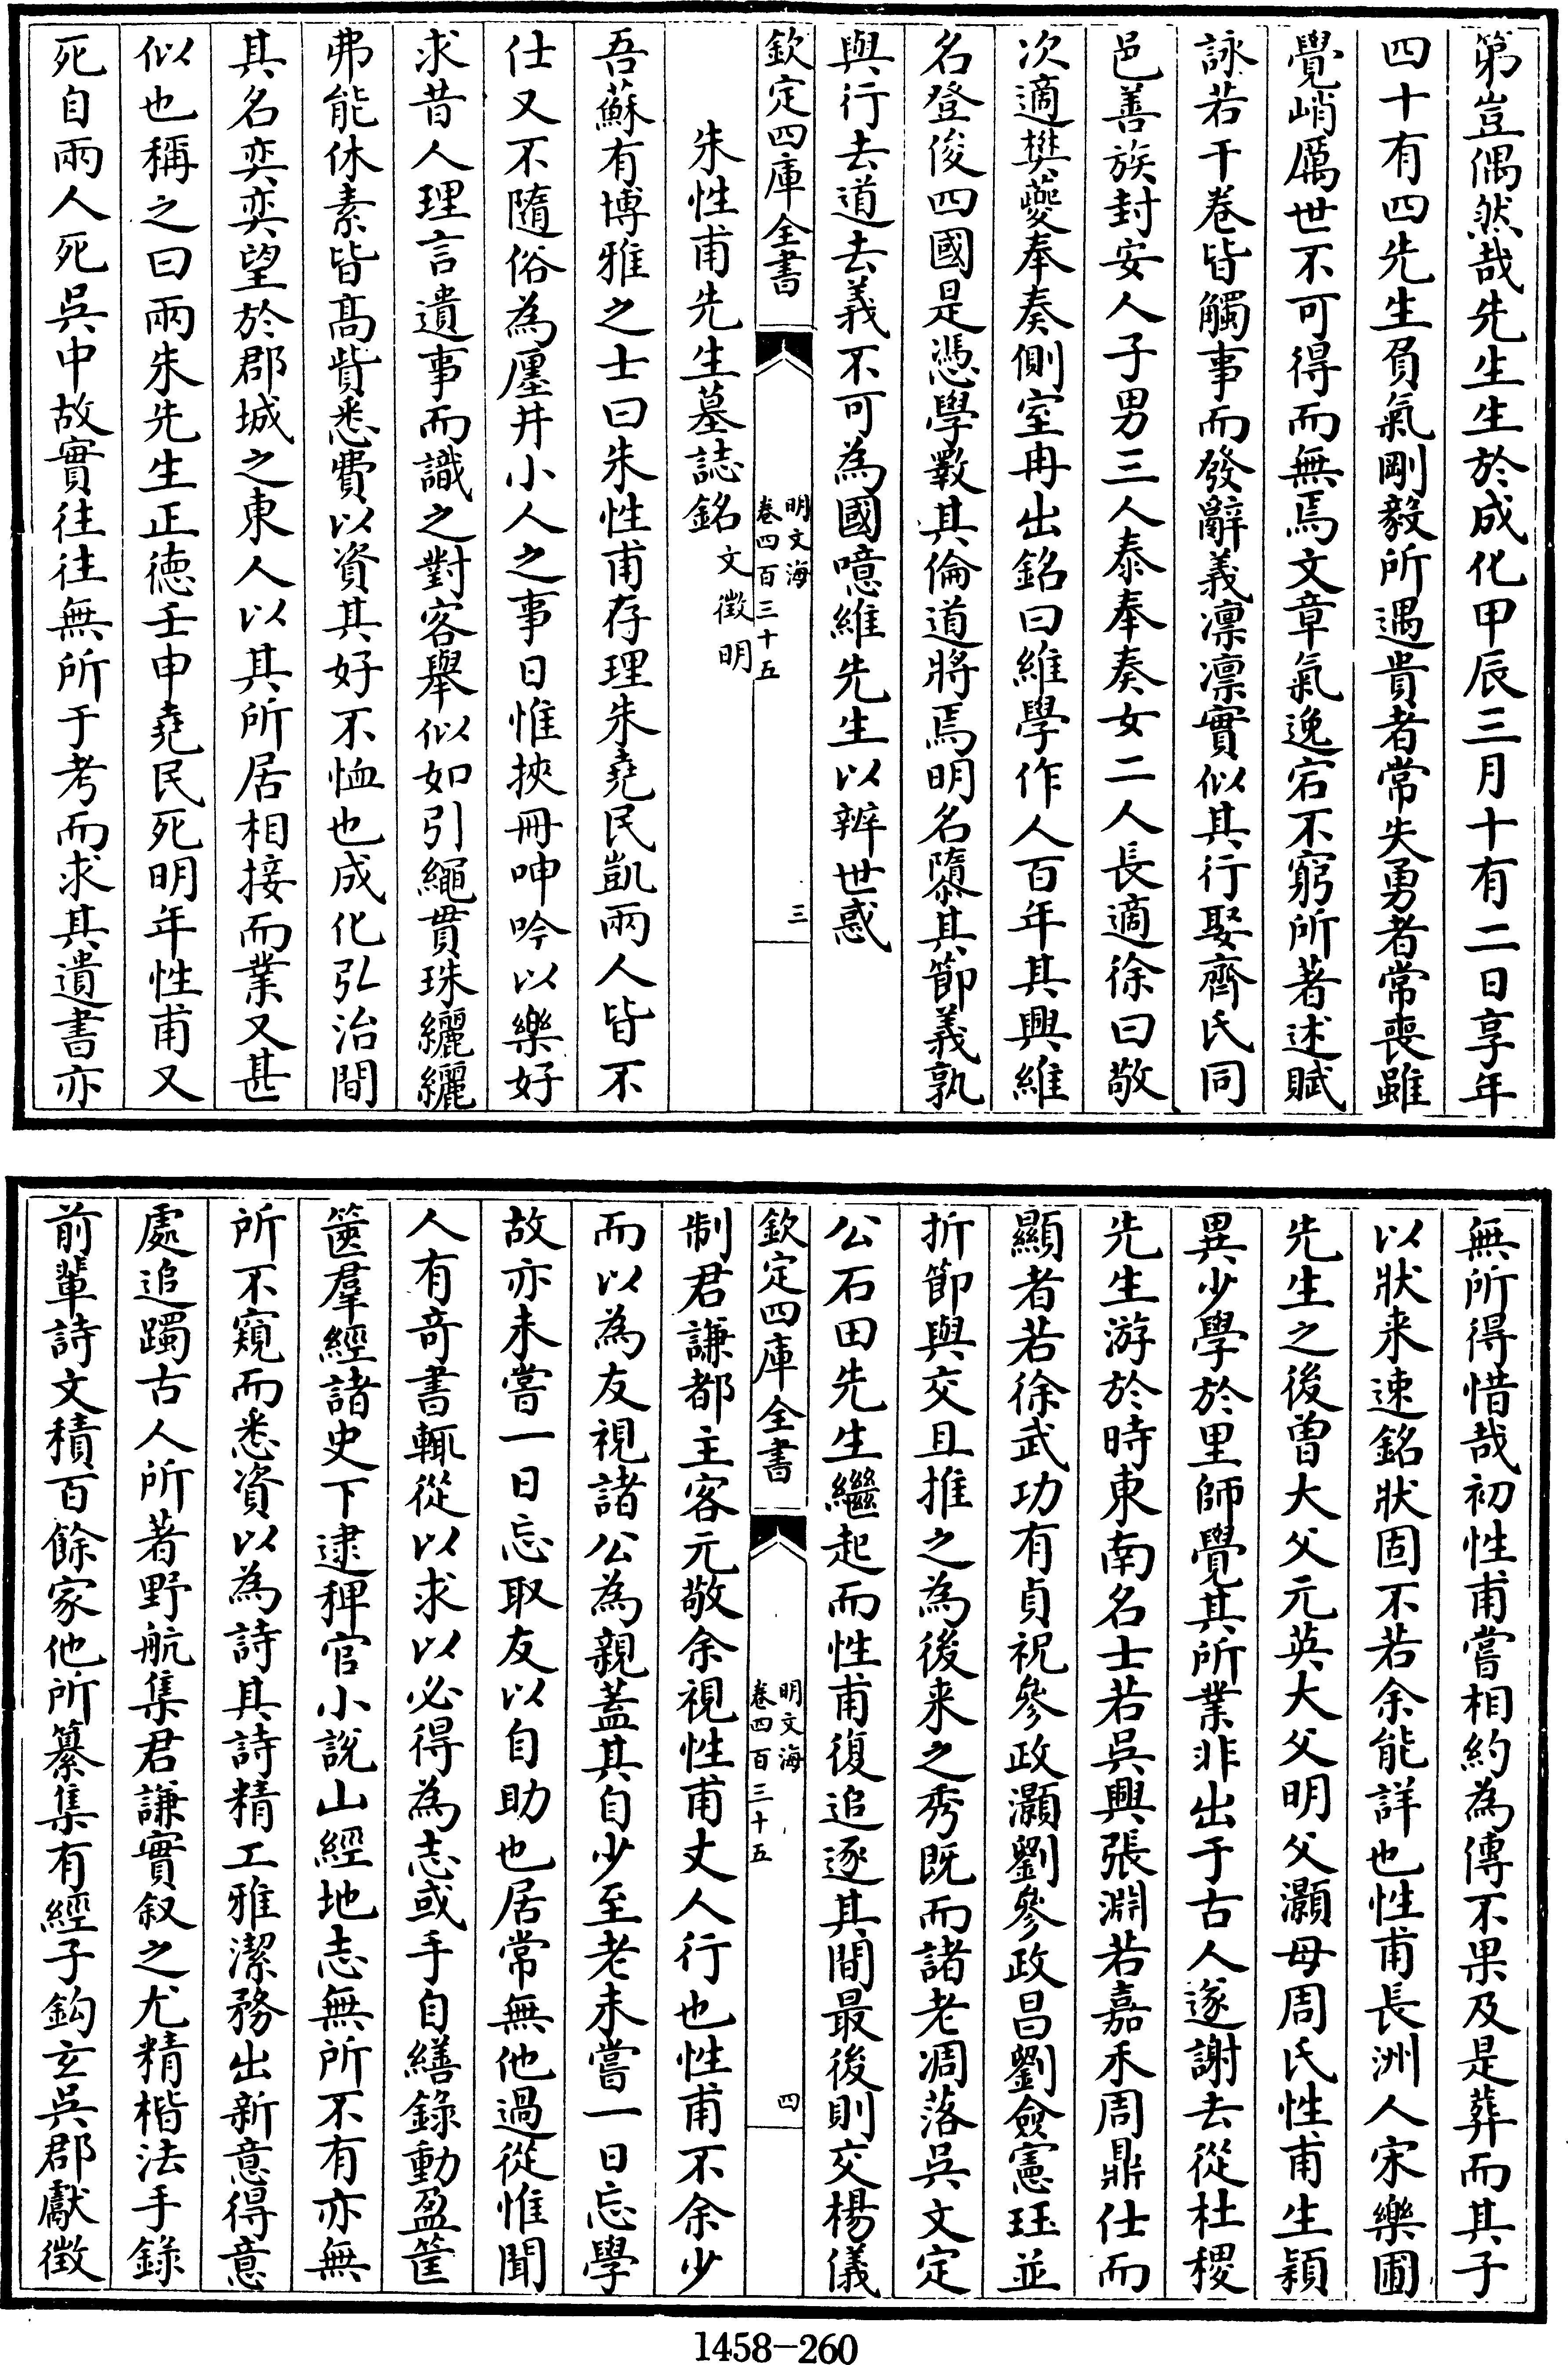 第豈偶然哉先生生於成化甲辰三月十有二日享年
四十有四先生負氣剛毅所遇貴者常失勇者常喪雖
覺峭厲世不可得而無焉文章氣逸宕不窮所著述賦
詠若干卷皆觸事而發辭義凛凛實似其行娶齊氏同
邑善族封安人子男三人泰奉奏女二人長適徐曰敬
次適樊夔奉奏側室冉出銘曰維學作人百年其興維
名登俊四國是憑學斁其倫道將焉明名隳其節義孰
與行去道去義不可為國噫維先生以辨世惑
欽定四庫全書
明文海
卷四百三十五
三
朱性甫先生墓誌銘 文徵明
吾蘇有博雅之士曰朱性甫存理朱堯民凱兩人皆不
仕又不隨俗為廛井小人之事日惟挾冊呻吟以樂好
求昔人理言遺事而識之對客舉似如引繩貫珠纚纚
弗能休素皆髙貲悉費以資其好不恤也成化弘治間
其名奕奕望於郡城之東人以其所居相接而業又甚
似也稱之曰兩朱先生正德壬申堯民死明年性甫又
死自兩人死吳中故實往往無所于考而求其遺書亦
無所得惜哉初性甫嘗相約為傳不果及是葬而其子
以狀来速銘狀固不若余能詳也性甫長洲人宋樂圃
先生之後曽大父元英大父明父灝母周氏性甫生穎
異少學於里師覺其所業非出于古人遂謝去從杜稷
先生游於時東南名士若吳興張淵若嘉禾周鼎仕而
顯者若徐武功有貞祝參政灝劉參政昌劉僉憲珏並
折節與交且推之為後来之秀既而諸老凋落吳文定
公石田先生繼起而性甫復追逐其間最後則交楊儀
欽定四庫全書
明文海
卷四百三十五
四
制君謙都主客元敬余視性甫丈人行也性甫不余少
而以為友視諸公為親蓋其自少至老未嘗一日忘學
故亦未嘗一日忘取友以自助也居常無他過從惟聞
人有竒書輒從以求以必得為志或手自繕錄動盈筐
篋羣經諸史下逮稗官小說山經地志無所不有亦無
所不窺而悉資以為詩其詩精工雅潔務出新意得意
處追躅古人所著野航集君謙實叙之尤精楷法手錄
前輩詩文積百餘家他所纂集有經子鈎玄吳郡獻徵
1458-260